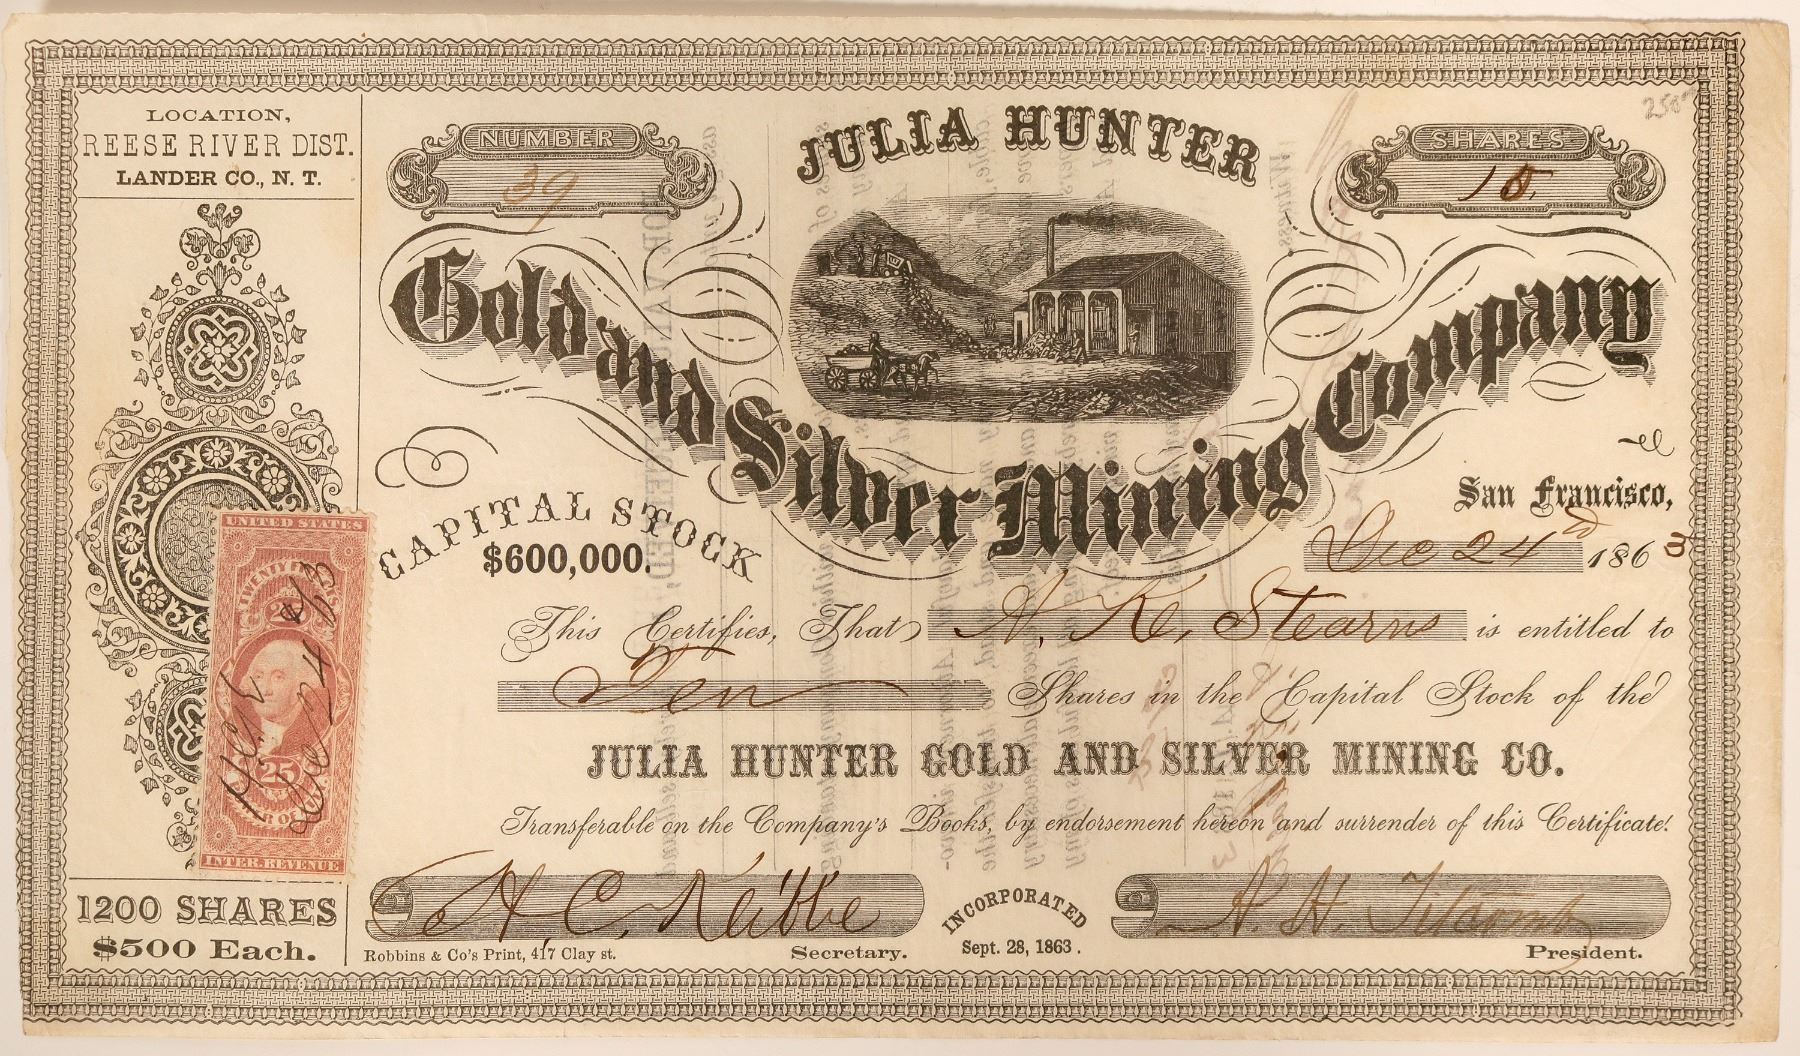 LOCATION,
REESE RIVER DIST.
LANDER CO., N. T.
NUMBER
39
JULIA HUNTER
SHARES
10.
Gold and Silver Mining Company
CAPITAL STOCK
$600,000.
San Francisco,
Dec 24 1863
This Certifies, That A. K. Stearns is entitled to
Ten Shares in the Capital Stock of the
JULIA HUNTER GOLD AND SILVER MINING CO.
Transferable on the Company's Books, by endorsement hereon and surrender of this Certificate.
UNITED STATES
25
INTER. REVENUE
H.C.K
Dec 24 63
1200 SHARES
$500 Each.
H. C. Kibbe
Robbins & Co's Print, 417 Clay st.
Secretary.
INCORPORATED
Sept. 28, 1863.
A. H. Titcomb
President.